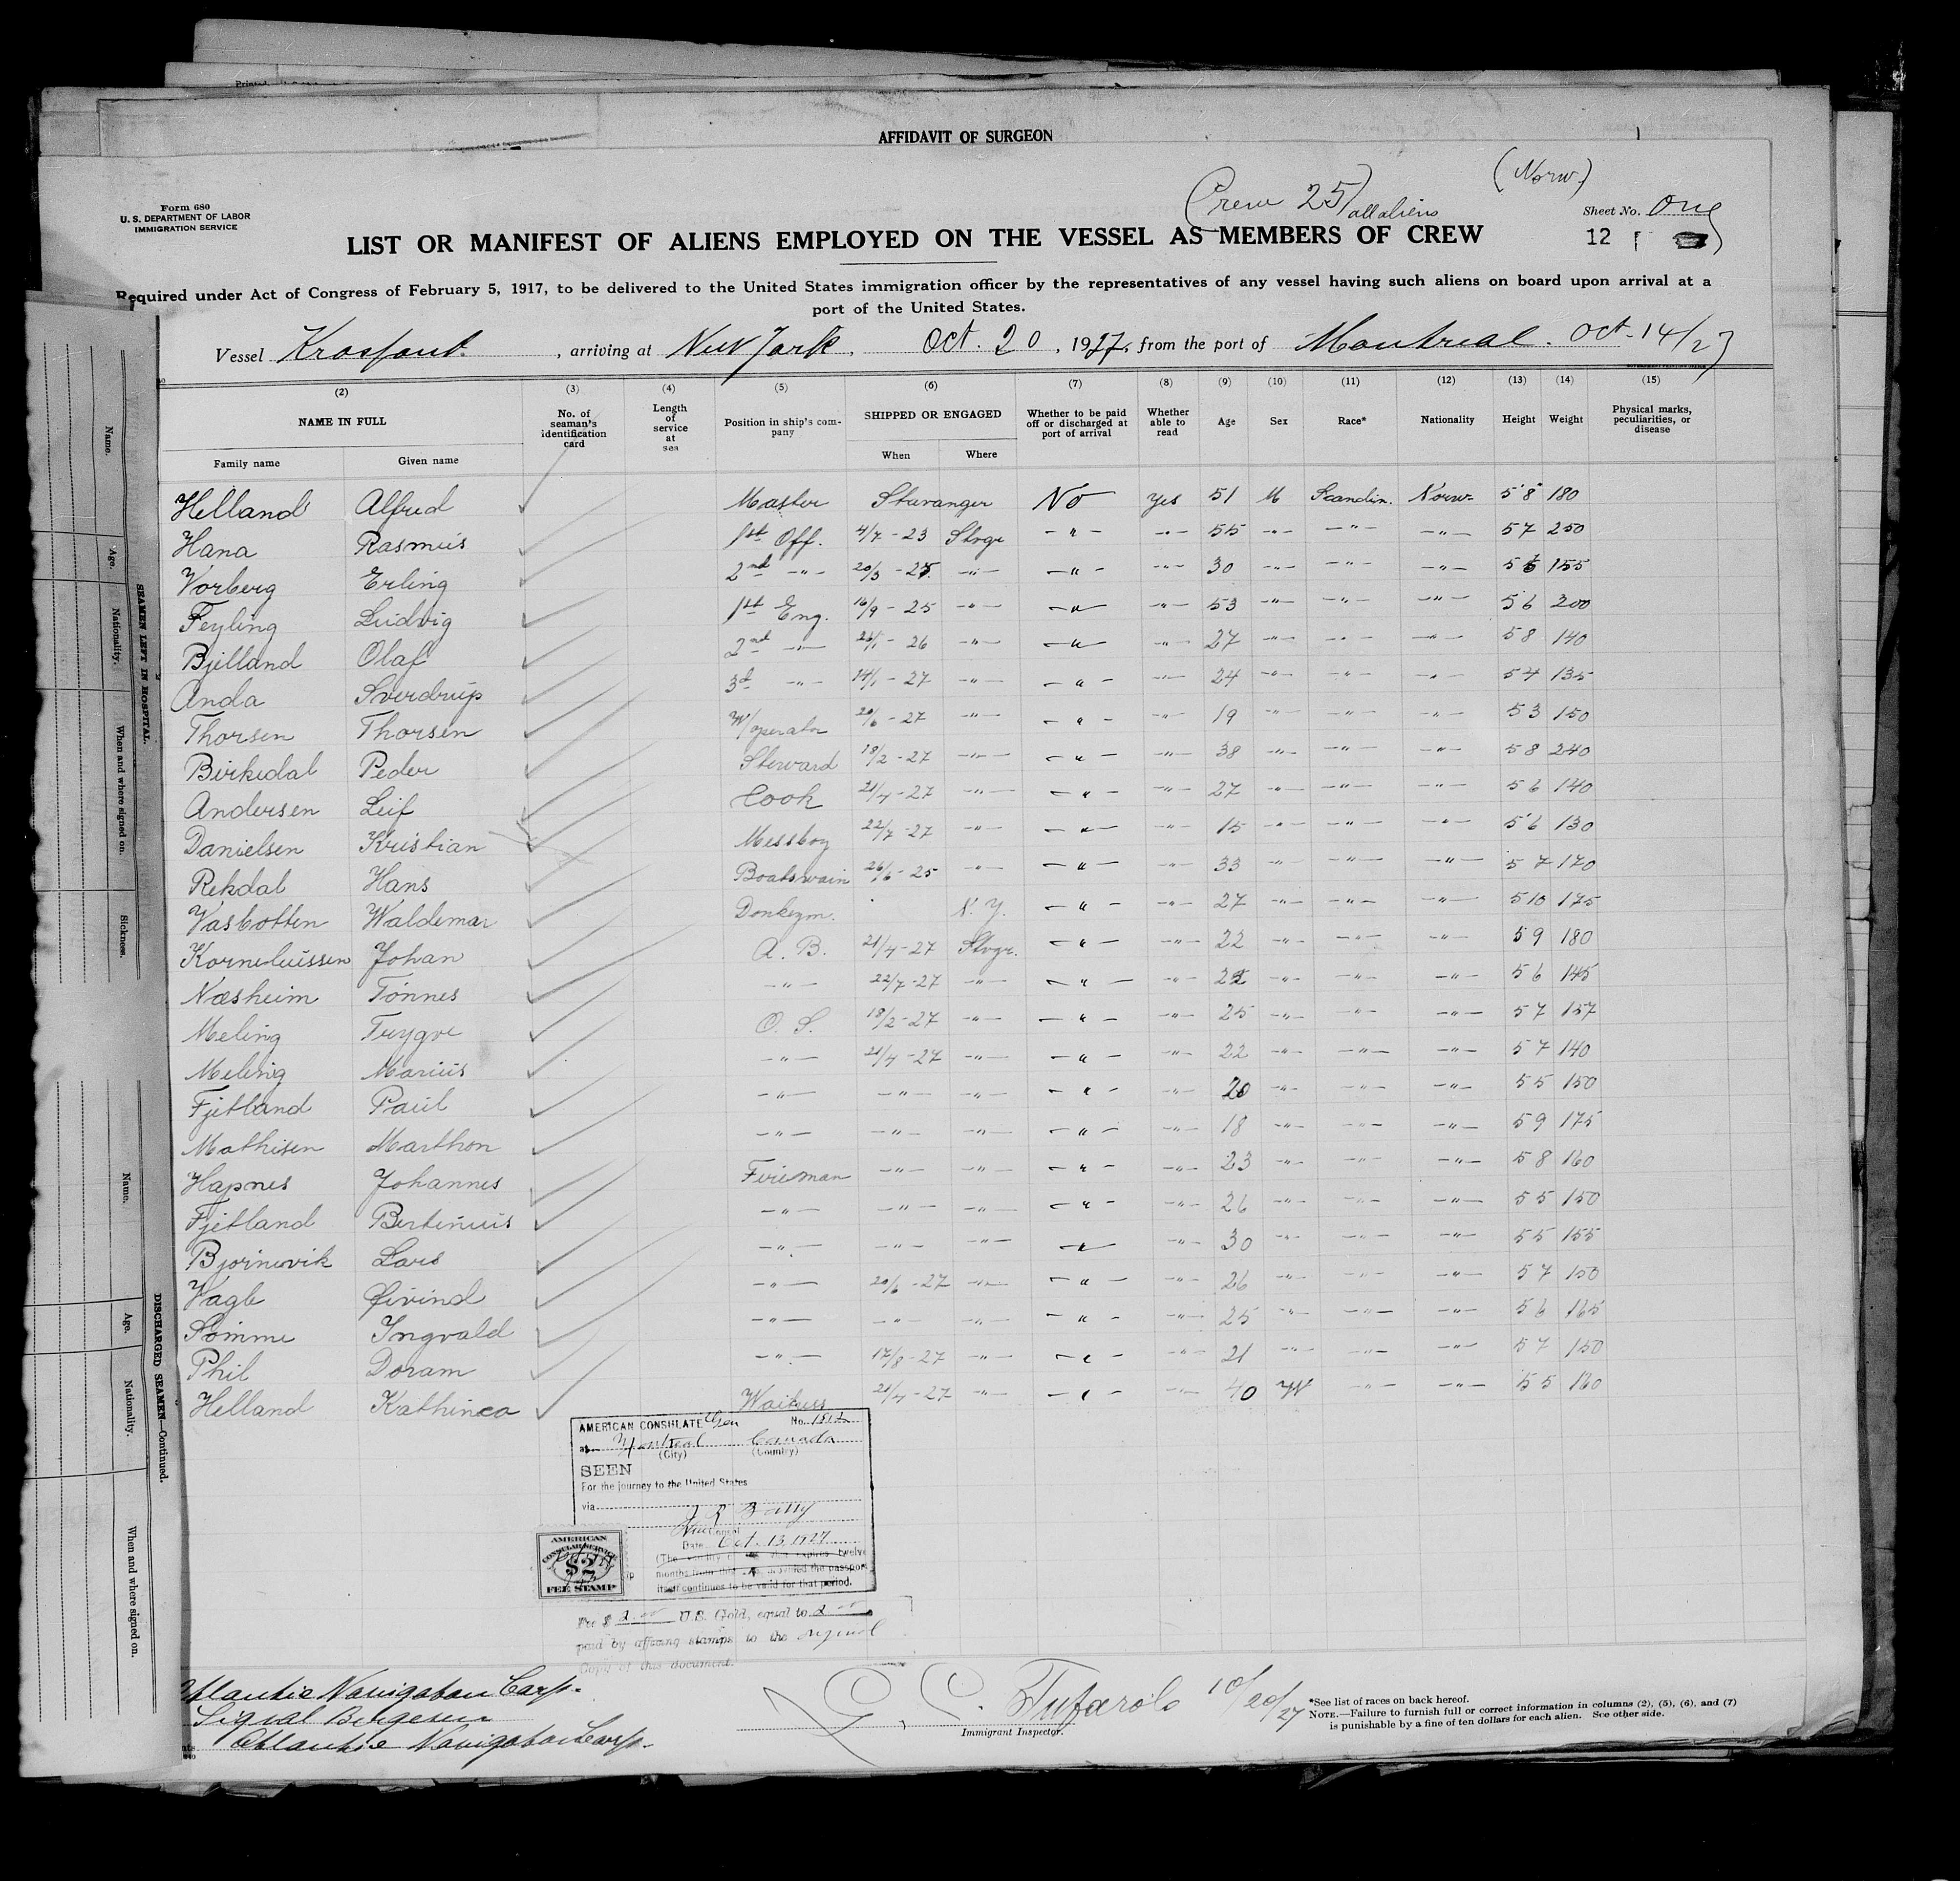 AFFIDAVIT OF SURGEON
(Crew 25) all aliens
(Norw.)
Form 680
U. S. DEPARTMENT OF LABOR
IMMIGRATION SERVICE
Sheet No. One
12
LIST OR MANIFEST OF ALIENS EMPLOYED ON THE VESSEL AS MEMBERS OF CREW
Required under Act of Congress of February 5, 1917, to be delivered to the United States immigration officer by the representatives of any vessel having such aliens on board upon arrival at a
port of the United States.
Vessel Krosfont, arriving at New York, Oct. 20, 1927, from the port of Montreal. Oct-14/27
(2) (3) (4) (5) (6) (7) (8) (9) (10) (11) (12) (13) (14) (15)
NAME IN FULL No. of seaman's identification card Length of service at sea Position in ship's company SHIPPED OR ENGAGED Whether to be paid off or discharged at port of arrival Whether able to read Age Sex Race* Nationality Height Weight Physical marks, peculiarities, or disease
Family name Given name When Where
Helland Alfred Master Stavanger No Yes 51 M Scandin. Norw. 5'8" 180
Hana Rasmus 1st Off. 4/7-23 Stvgr -"- -"- 55 -"- -"- -"- 5 7 250
Vorberg Erling 2nd -"- 20/3-25 -"- -"- -"- 30 -"- -"- -"- 5 6 155
Feyling Ludvig 1st Eng. 16/9-25 -"- -"- -"- 53 -"- -"- -"- 5 6 200
Bjelland Olaf 2nd -"- 26/1-26 -"- -"- -"- 27 -"- -"- -"- 5 8 140
Anda Sverdrup 3d -"- 14/1-27 -"- -"- -"- 24 -"- -"- -"- 5 4 135
Thorsen Thorsen W/operator 20/6-27 -"- -"- -"- 19 -"- -"- -"- 5 3 150
Birkedal Peder Steward 18/2-27 -"- -"- -"- 38 -"- -"- -"- 5 8 240
Andersen Leif Cook 21/4-27 -"- -"- -"- 27 -"- -"- -"- 5 6 140
Danielsen Kristian Messboy 22/7-27 -"- -"- -"- 15 -"- -"- -"- 5 6 130
Rekdal Hans Boatswain 26/6-25 -"- -"- -"- 33 -"- -"- -"- 5 7 170
Vasbotten Waldemar Donkeym. N. Y. -"- -"- 27 -"- -"- -"- 5 10 175
Korneliussen Johan A. B. 21/4-27 Stvgr. -"- -"- 22 -"- -"- -"- 5 9 180
Næsheim Tönnes -"- 22/7-27 -"- -"- -"- -"- -"- -"- 5 6 145
Meling Trygve O. S. 18/2-27 -"- -"- -"- 25 -"- -"- -"- 5 7 157
Meling Marius -"- 21/4-27 -"- -"- -"- 22 -"- -"- -"- 5 7 140
Fjetland Paul -"- -"- -"- -"- -"- 20 -"- -"- -"- 5 5 150
Mathisen Marthon -"- -"- -"- -"- -"- 18 -"- -"- -"- 5 9 175
Hapnes Johannes Fireman -"- -"- -"- -"- 23 -"- -"- -"- 5 8 160
Fjetland Bertinius -"- -"- -"- -"- -"- 26 -"- -"- -"- 5 5 150
Bjornevik Lars -"- -"- -"- -"- -"- 30 -"- -"- -"- 5 5 155
Vagle Øivind -"- 20/6-27 -"- -"- -"- 26 -"- -"- -"- 5 7 150
Sömme Ingvald -"- -"- -"- -"- -"- 25 -"- -"- -"- 5 6 165
Phil Doram -"- 17/8-27 -"- -"- -"- 21 -"- -"- -"- 5 7 150
Helland Kathinca Waitress 21/4-27 -"- -"- -"- 40 W -"- -"- 5 5 160
AMERICAN CONSULATE Gen No. 1512
at Montreal Canada
(City) (Country)
SEEN
For the journey to the United States
via
Vice Consul
Date Oct. 13, 1927
months from this provided the passport
itself continues to be valid for that period.
AMERICAN
CONSULAR SERVICE
$2
FEE STAMP
Fee $ 2.00 U.S. Gold, equal to 2.00
paid by affixing stamps to the original
Copy of this document.
Atlantic Navigation Corp.
Sigval Bergesen
Atlantic Navigation Corp.
10/20/27
Immigrant Inspector.
*See list of races on back hereof.
NOTE.—Failure to furnish full or correct information in columns (2), (5), (6), and (7)
is punishable by a fine of ten dollars for each alien. See other side.
SEAMEN LEFT IN HOSPITAL.
Name.
Age.
Nationality.
When and where signed on.
Sickness.
DISCHARGED SEAMEN—Continued.
Name.
Age.
Nationality.
When and where signed on.